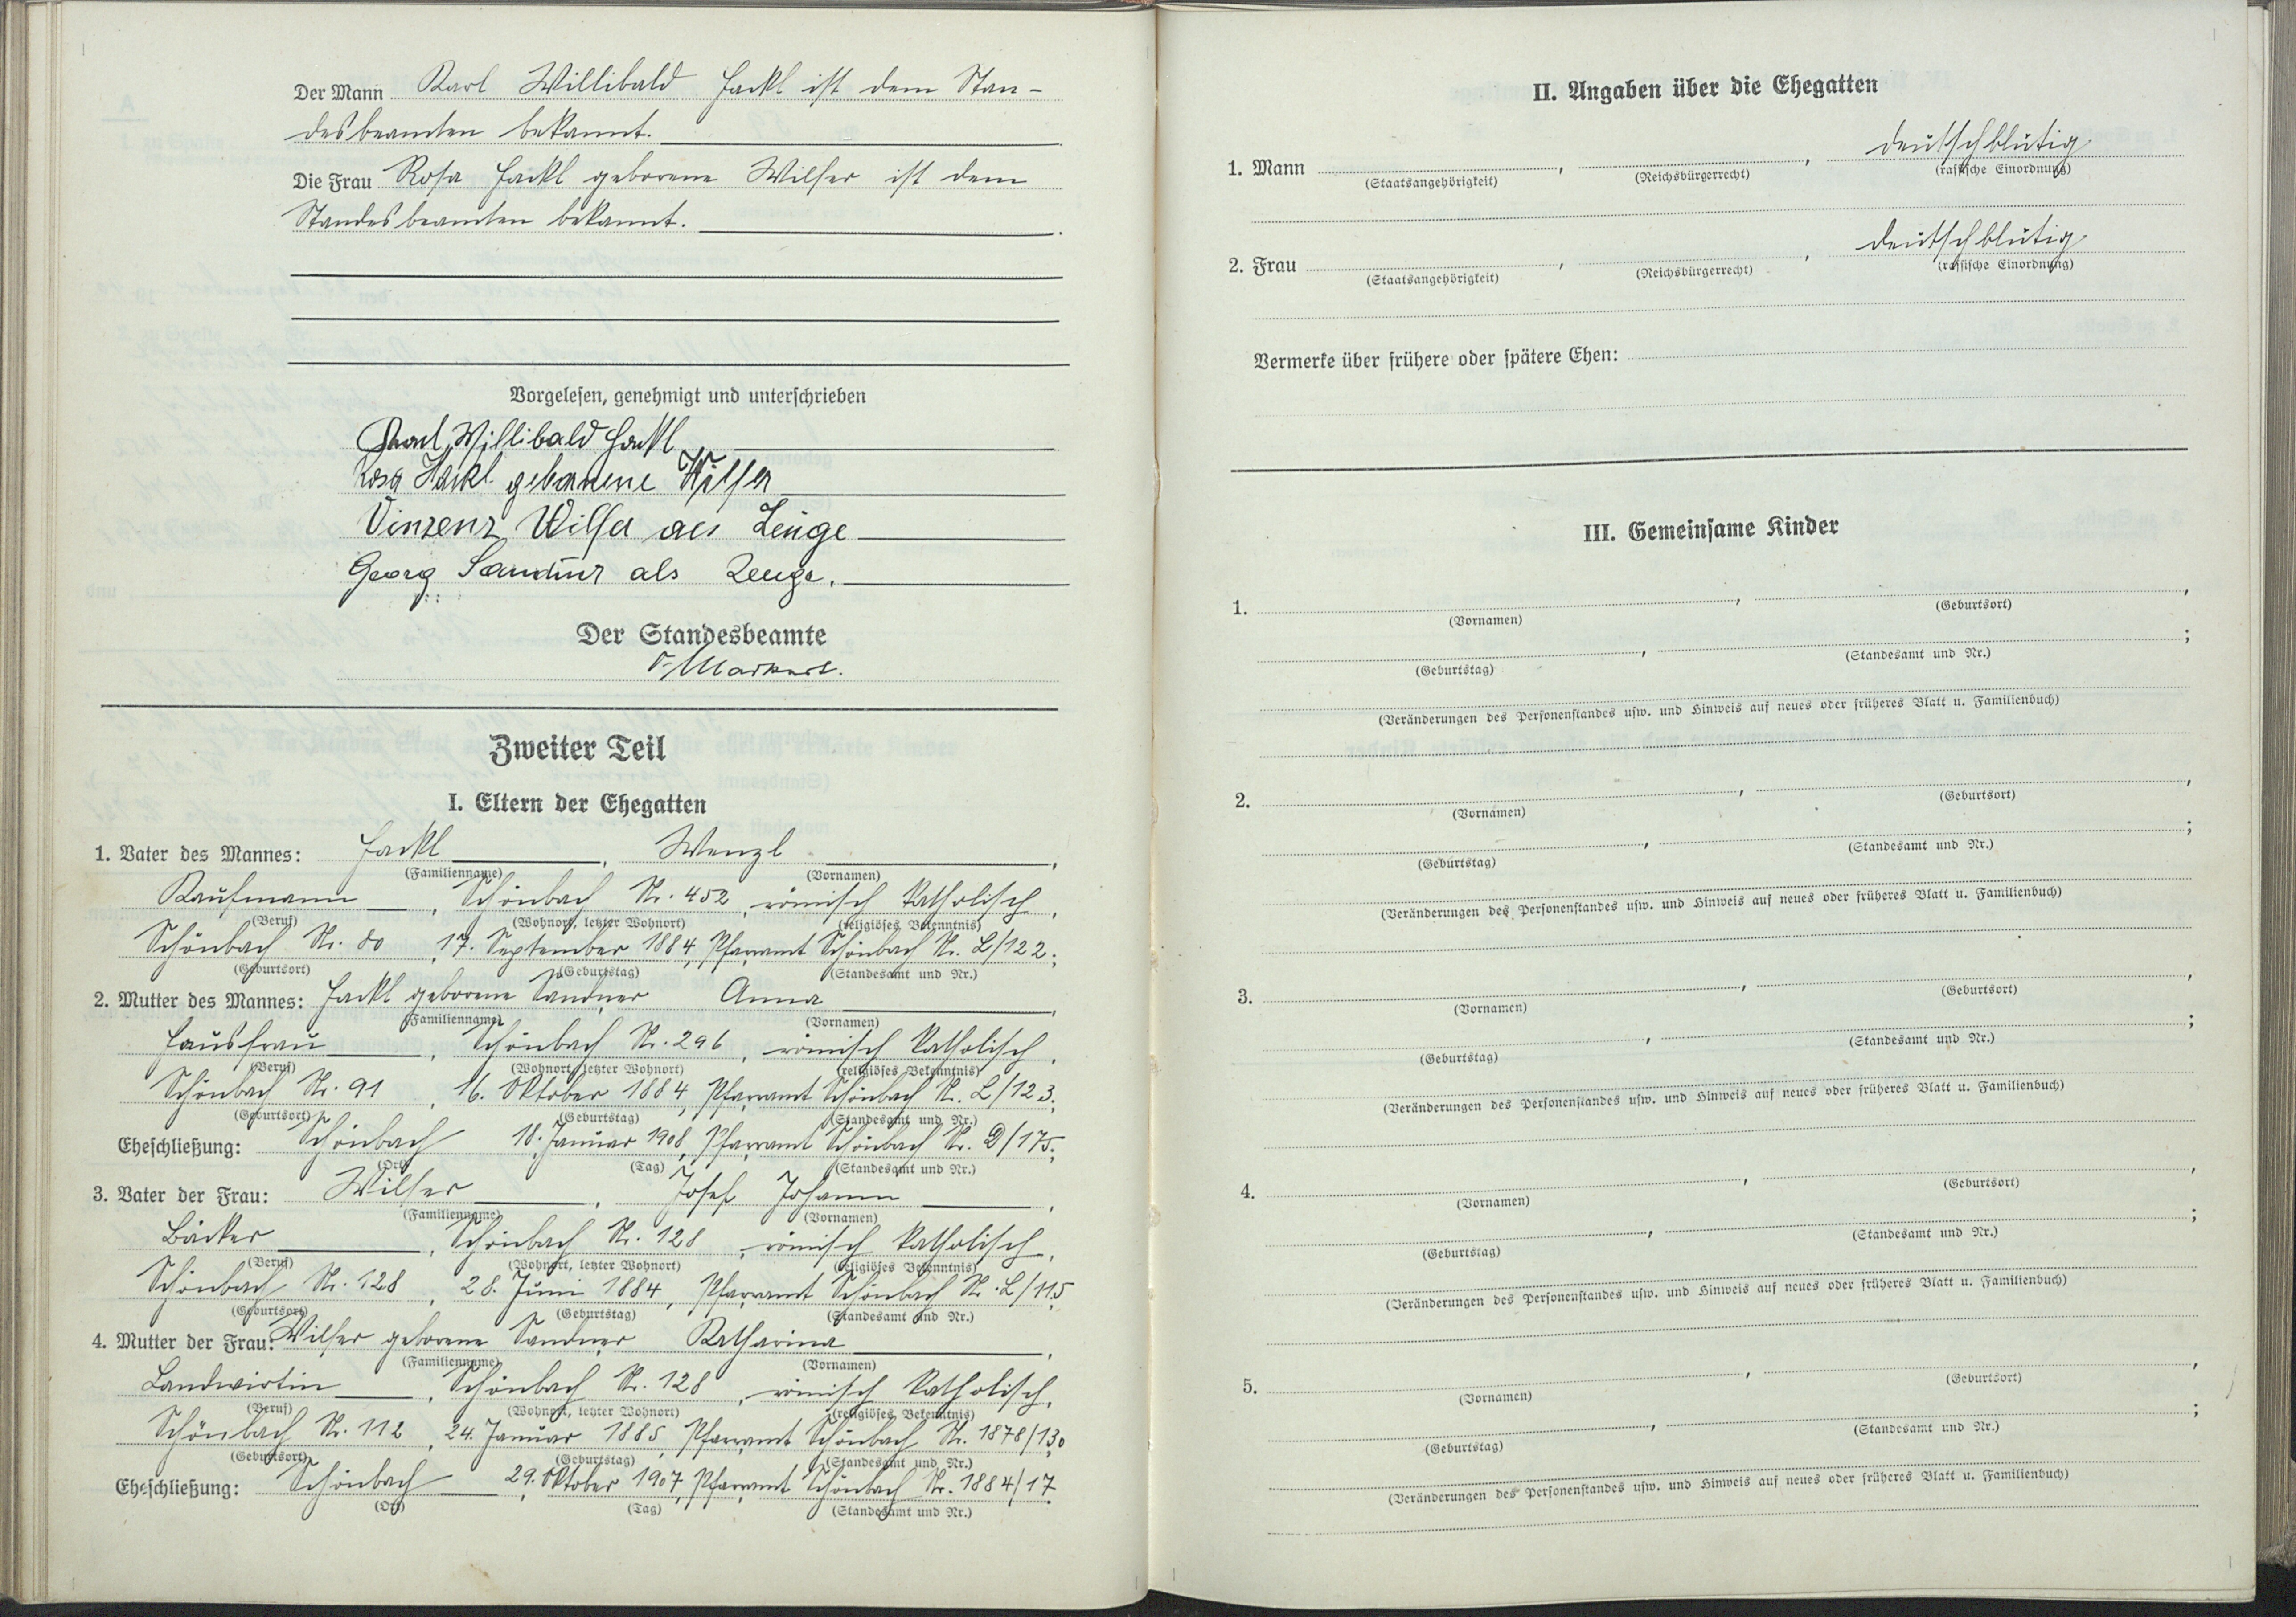 Der Mann Karl Willibald Hackl ist dem Stan-
desbeamten bekannt.
Die Frau Rosa Hackl geborene Wilfer ist dem
Standesbeamten bekannt.
Vorgelesen, genehmigt und unterschrieben
Karl Willibald Hackl
Rosa Hackl geborene Wilfer
Vinzenz Wilfer als Zeuge
Georg Sandner als Zeuge.
Der Standesbeamte
Markert.
Zweiter Teil
I. Eltern der Ehegatten
1. Vater des Mannes: Hackl, Wenzl,
(Familienname) (Vornamen)
Kaufmann, Schönbach Nr. 452, römisch katholisch,
(Beruf) (Wohnort, letzter Wohnort) (religiöses Bekenntnis)
Schönbach Nr. 80, 17. September 1884, Pfarramt Schönbach Nr. L/122;
(Geburtsort) (Geburtstag) (Standesamt und Nr.)
2. Mutter des Mannes: Hackl geborene Sandner Anna,
(Familienname) (Vornamen)
Hausfrau, Schönbach Nr. 296, römisch katholisch,
(Beruf) (Wohnort, letzter Wohnort) (religiöses Bekenntnis)
Schönbach Nr. 91, 16. Oktober 1884, Pfarramt Schönbach Nr. L/123;
(Geburtsort) (Geburtstag) (Standesamt und Nr.)
Eheschließung: Schönbach 18. Januar 1908, Pfarramt Schönbach Nr. D/175;
(Ort) (Tag) (Standesamt und Nr.)
3. Vater der Frau: Wilfer, Josef Johann,
(Familienname) (Vornamen)
Bäcker, Schönbach Nr. 128, römisch katholisch,
(Beruf) (Wohnort, letzter Wohnort) (religiöses Bekenntnis)
Schönbach Nr. 128, 28. Juni 1884, Pfarramt Schönbach Nr. L/115;
(Geburtsort) (Geburtstag) (Standesamt und Nr.)
4. Mutter der Frau: Wilfer geborene Sandner Katharina,
(Familienname) (Vornamen)
Landwirtin, Schönbach Nr. 128, römisch katholisch,
(Beruf) (Wohnort, letzter Wohnort) (religiöses Bekenntnis)
Schönbach Nr. 112, 24. Januar 1885, Pfarramt Schönbach Nr. 1878/130
(Geburtsort) (Geburtstag) (Standesamt und Nr.)
Eheschließung: Schönbach, 29. Oktober 1907, Pfarramt Schönbach Nr. 1884/17.
(Ort) (Tag) (Standesamt und Nr.)
II. Angaben über die Ehegatten
1. Mann , , deutschblütig
(Staatsangehörigkeit) (Reichsbürgerrecht) (rassische Einordnung)
2. Frau , , deutschblütig
(Staatsangehörigkeit) (Reichsbürgerrecht) (rassische Einordnung)
Vermerke über frühere oder spätere Ehen:
III. Gemeinsame Kinder
1. , ,
(Vornamen) (Geburtsort)
, ;
(Geburtstag) (Standesamt und Nr.)
(Veränderungen des Personenstandes usw. und Hinweis auf neues oder früheres Blatt u. Familienbuch)
2. , ,
(Vornamen) (Geburtsort)
, ;
(Geburtstag) (Standesamt und Nr.)
(Veränderungen des Personenstandes usw. und Hinweis auf neues oder früheres Blatt u. Familienbuch)
3. , ,
(Vornamen) (Geburtsort)
, ;
(Geburtstag) (Standesamt und Nr.)
(Veränderungen des Personenstandes usw. und Hinweis auf neues oder früheres Blatt u. Familienbuch)
4. , ,
(Vornamen) (Geburtsort)
, ;
(Geburtstag) (Standesamt und Nr.)
(Veränderungen des Personenstandes usw. und Hinweis auf neues oder früheres Blatt u. Familienbuch)
5. , ,
(Vornamen) (Geburtsort)
, ;
(Geburtstag) (Standesamt und Nr.)
(Veränderungen des Personenstandes usw. und Hinweis auf neues oder früheres Blatt u. Familienbuch)